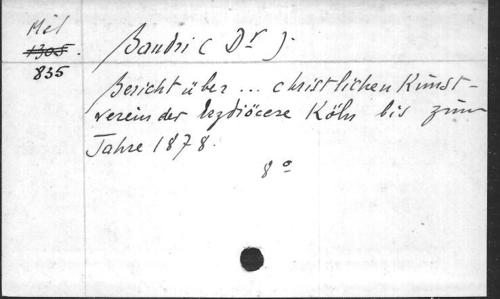 Mél
1305.
835
Baudri (Dr).
Bericht über ... christlichen Kunst-
verein der Erzdiöcese Köln bis zum
Jahre 1878.
8º